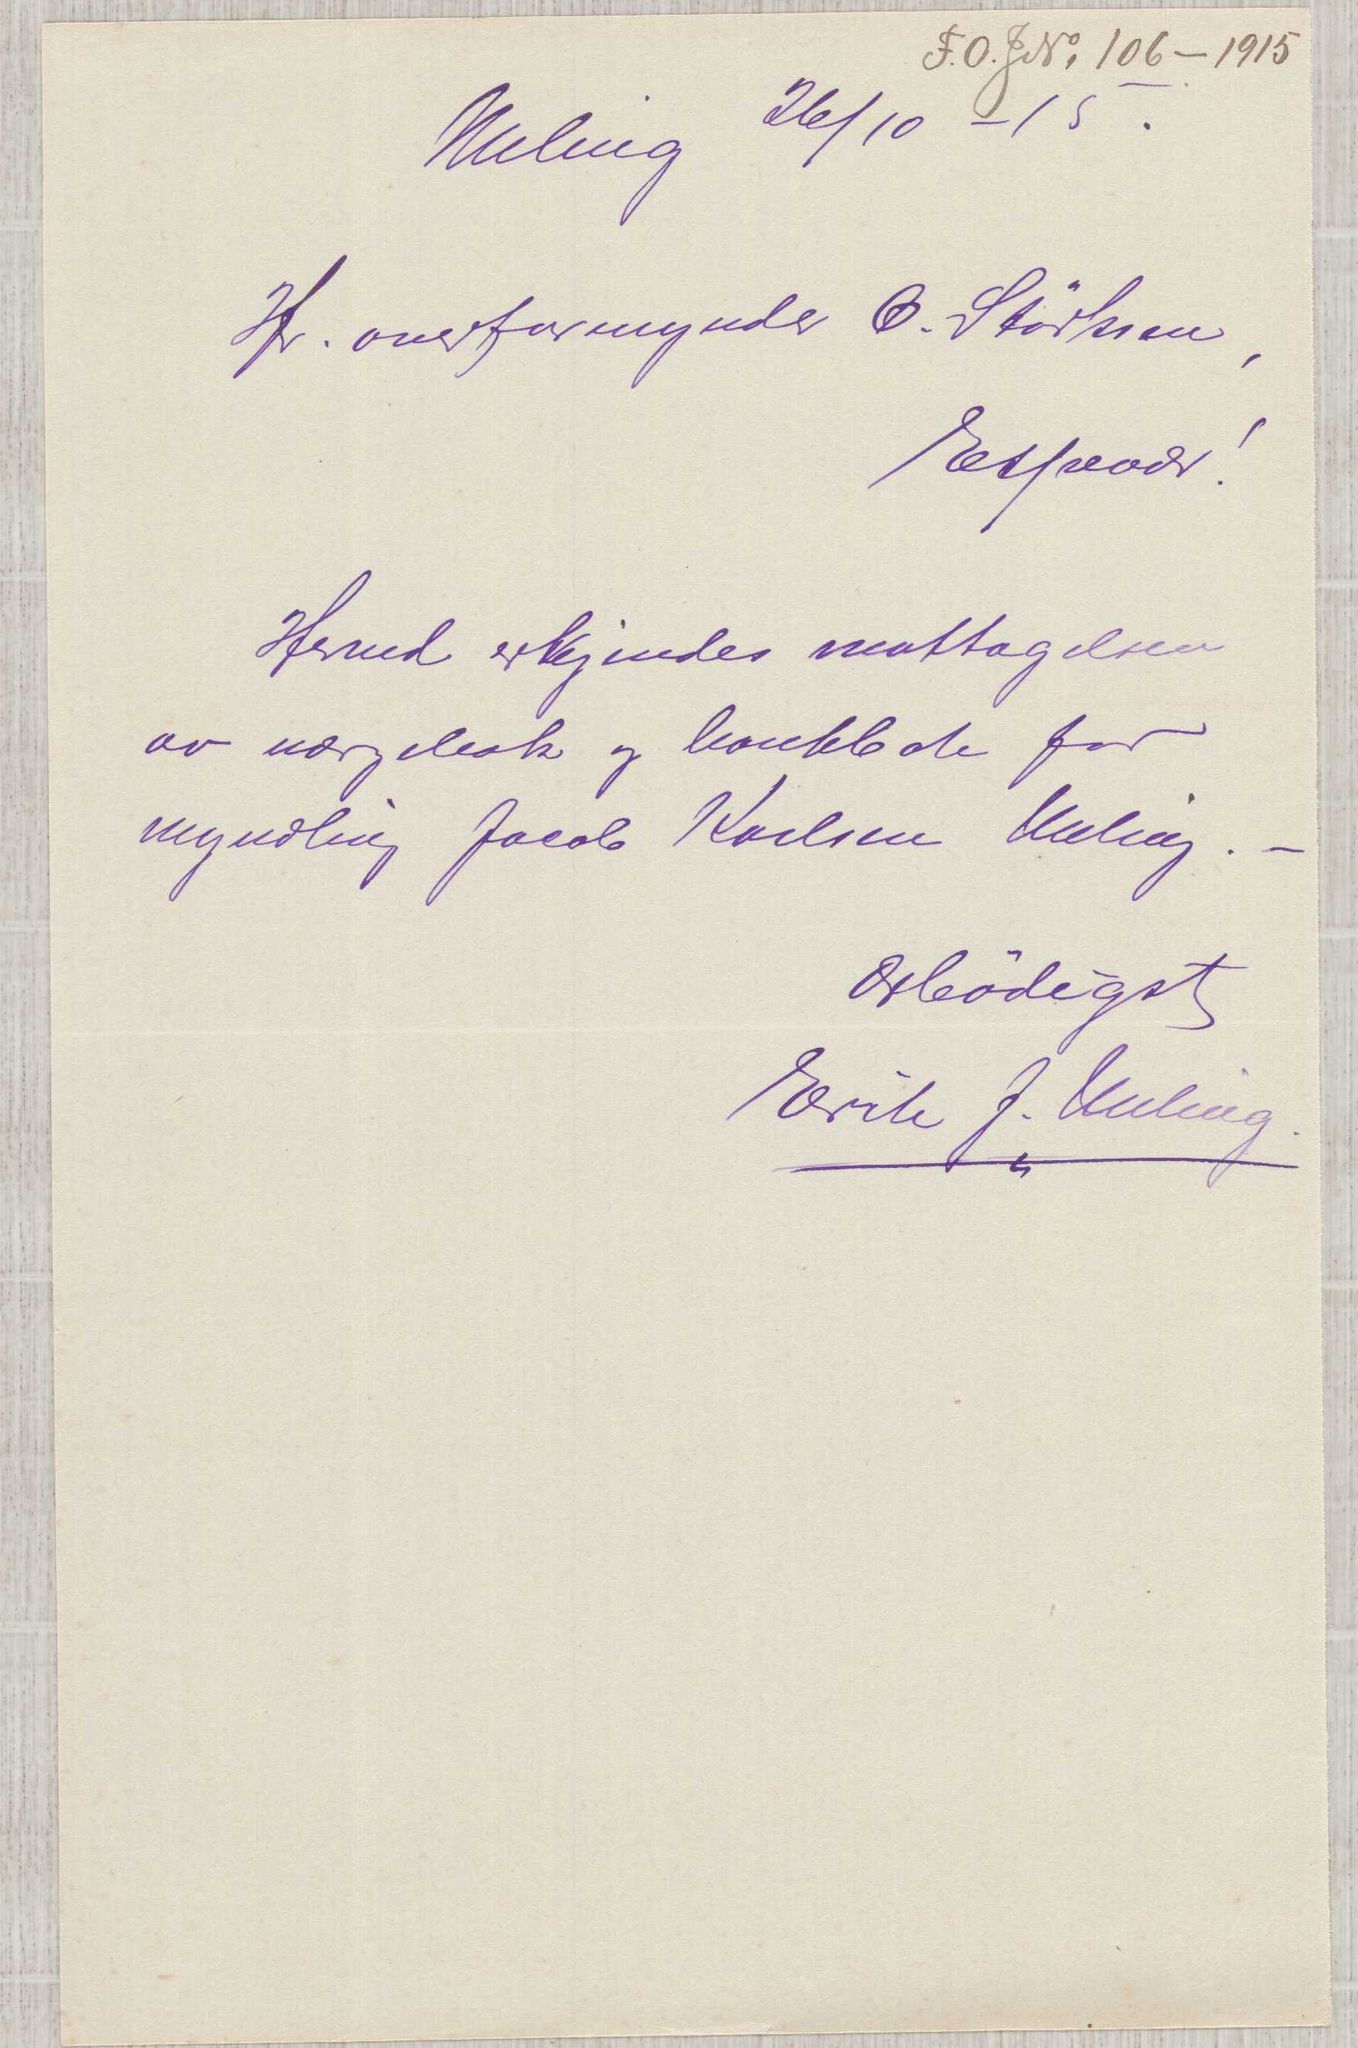 F.O.J.No. 106 – 1915
Meling 26/10 – 15.
Hr. overformynder O. Störksen,
Espevær!
Herved erkjendes mottagelsen
av værgebok og bankbok for
myndling Jacob Karlsen Meling. –
Ærbödigst
Erik J. Meling.